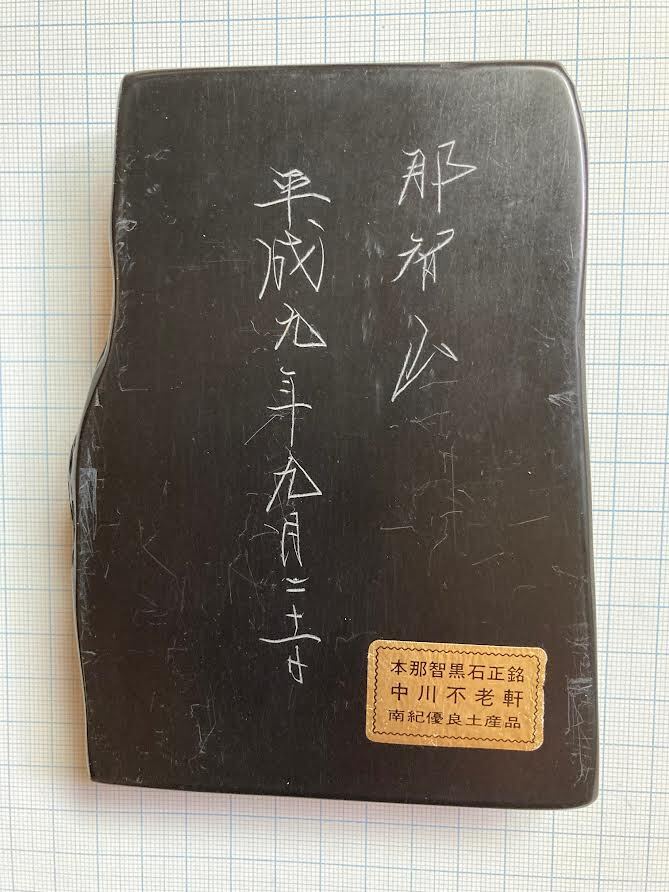 那智山
平成九年九月二十
本那智黒石正銘
中川不老軒
南紀優良土産品